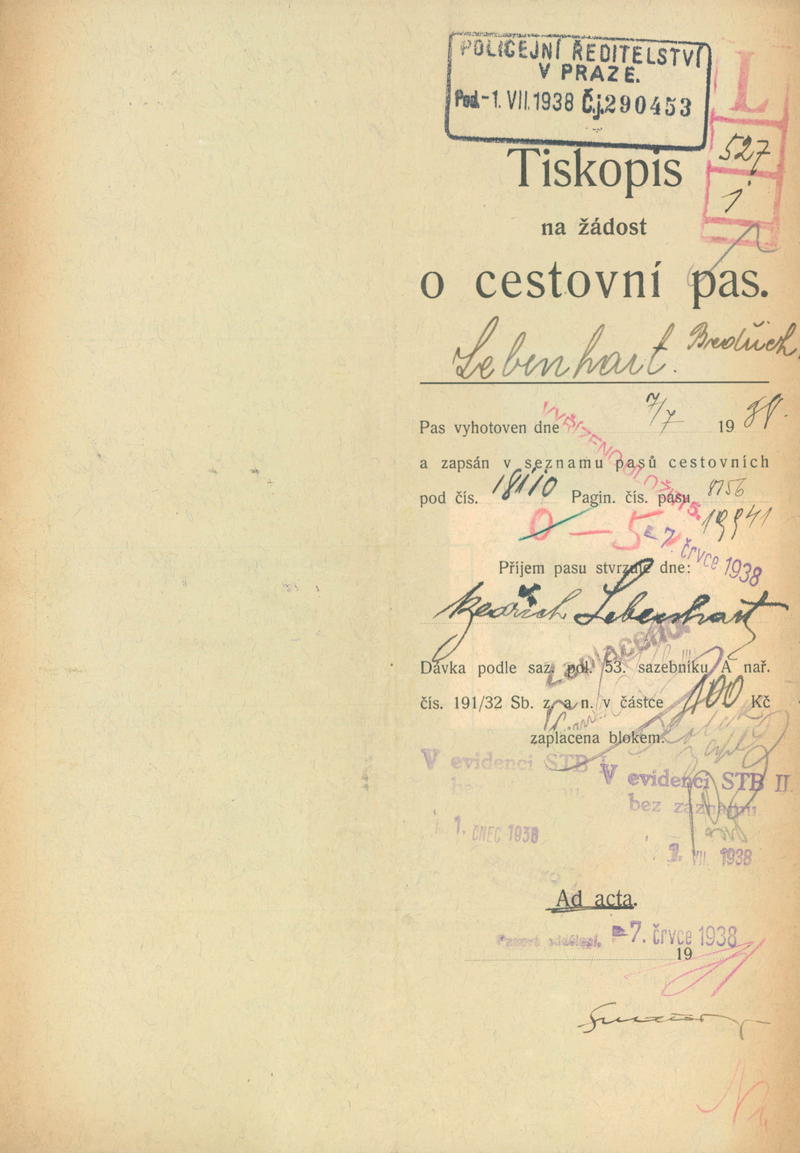 POLICEJNÍ ŘEDITELSTVÍ
V PRAZE.
Pod. -1. VII. 1938 Č.j. 290453
L
527
1
Tiskopis
na žádost
o cestovní pas.
Lebenhart. Bedřich,
Pas vyhotoven dne 7/7 1938.
a zapsán v seznamu pasů cestovních
pod čís. 18110 Pagin. čís. pasu 8756
0 — 5
-7. črvce 1938
Příjem pasu stvrzuje dne:
Bedřich Lebenhart
Zaplaceno.
Dávka podle saz. pol. 53. sazebníku A nař.
čís. 191/32 Sb. z. a n. v částce 100 Kč
zaplacena blokem.
V evidenci STB
V evidenci STB II
bez záznamu
1. ČNEC 1938
VII. 1938
Ad acta.
-7. črvce 1938
19